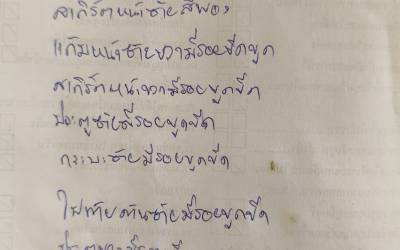 สเกิร์ตหน้าซ้ายสีพอง
แก้มหน้าซ้ายขวามีรอยขีดขูด
สเกิร์ตหน้าขวามีรอยขูดขีด
ประตูซ้ายมีรอยขูดขีด
กระบะซ้ายมีรอยขูดขีด
ไฟท้ายด้านซ้ายมีรอยขูดขีด